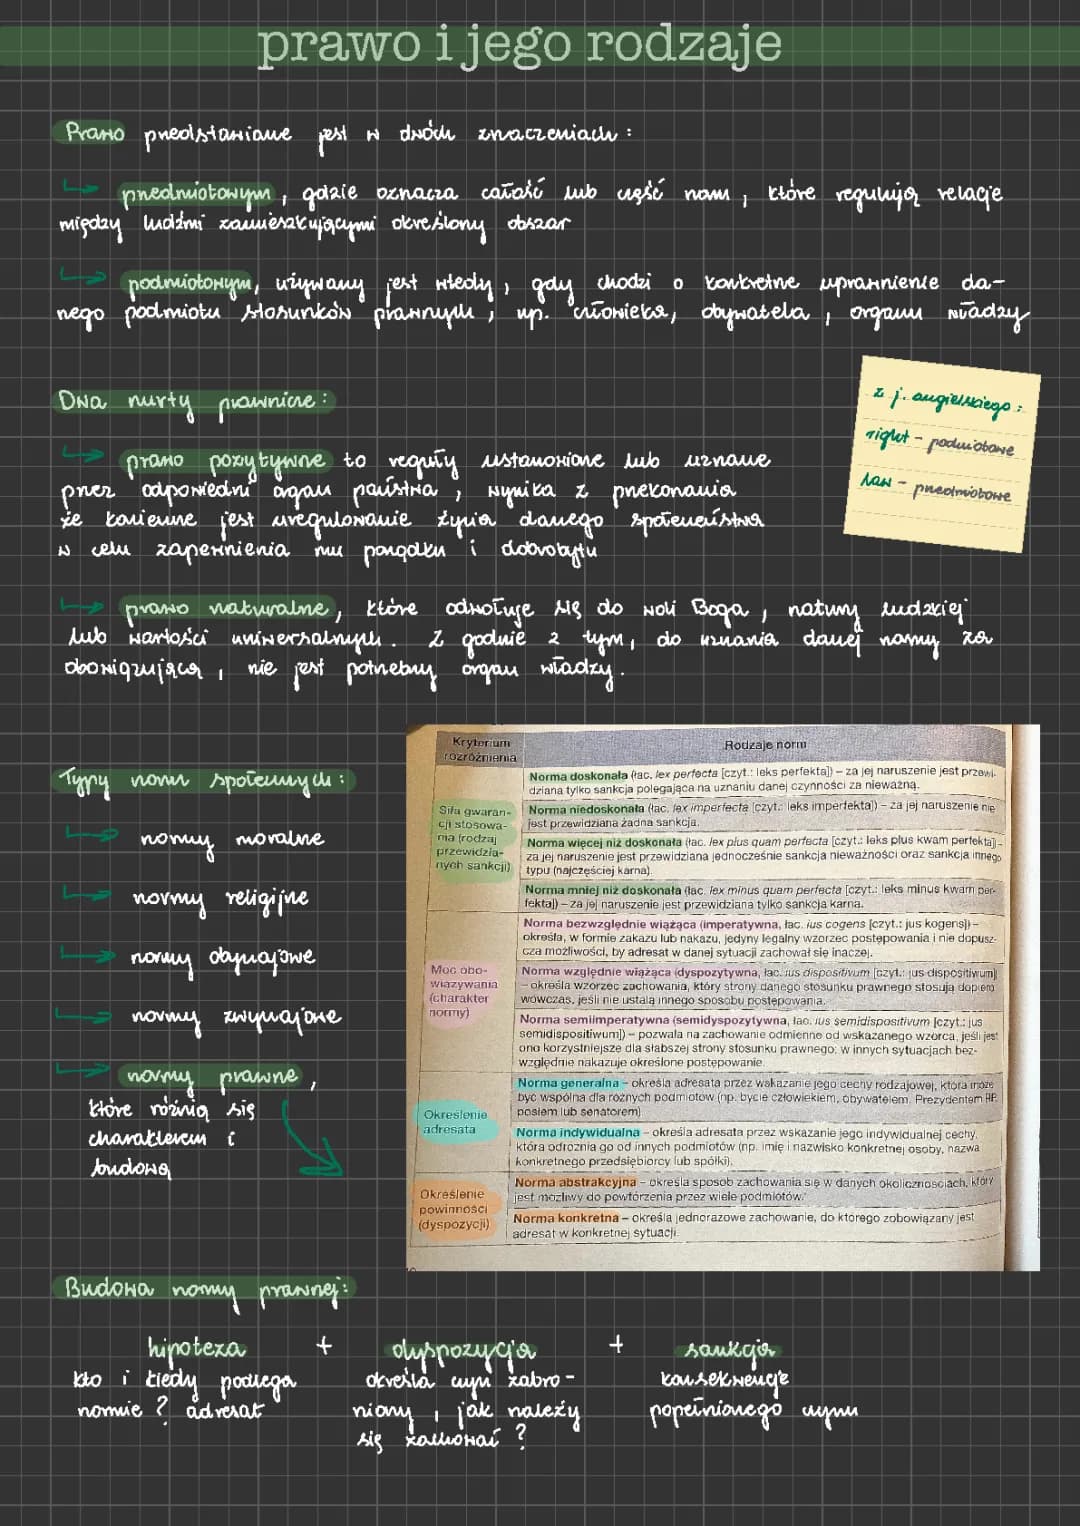 prawo i jego rodzaje
Prawo przedstawiane jest w dwóch znaczeniach :
przedmiotowym , gdzie oznacza całość lub część norm , które regulują relacje
między ludźmi zamieszkującymi określony obszar
podmiotowym, używany jest wtedy , gdy chodzi o konkretne uprawnienie da-
nego podmiotu stosunków prawnych , np. człowieka, obywatela , organu władzy
z j. angielskiego :
right - podmiotowe
law - przedmiotowe
Dwa nurty prawnicze :
prawo pozytywne to reguły ustanowione lub uznane
przez odpowiedni organ państwa , wynika z przekonania
że konieczne jest uregulowanie życia danego społeczeństwa
w celu zapewnienia mu porządku i dobrobytu
prawo naturalne , które odwołuje się do woli Boga , natury ludzkiej
lub wartości uniwersalnych . Z godnie z tym , do uznania danej normy za
obowiązującą , nie jest potrzebny organ władzy .
Typy norm społecznych :
normy moralne
normy religijne
normy obyczajowe
normy zwyczajowe
normy prawne ,
które różnią się
charakterem i
budową
Kryterium rozróżnienia
Rodzaje norm
Siła gwaran-
cji stosowa-
nia (rodzaj
przewidzia-
nych sankcji)
Norma doskonała (łac. lex perfecta [czyt.: leks perfekta]) – za jej naruszenie jest przewi-
dziana tylko sankcja polegająca na uznaniu danej czynności za nieważną.
Norma niedoskonała (łac. lex imperfecta [czyt.: leks imperfekta]) – za jej naruszenie nie
jest przewidziana żadna sankcja.
Norma więcej niż doskonała (łac. lex plus quam perfecta [czyt.: leks plus kwam perfekta]) –
za jej naruszenie jest przewidziana jednocześnie sankcja nieważności oraz sankcja innego
typu (najczęściej karna).
Norma mniej niż doskonała (łac. lex minus quam perfecta [czyt.: leks minus kwam per-
fekta]) – za jej naruszenie jest przewidziana tylko sankcja karna.
Moc obo-
wiązywania
(charakter
normy)
Norma bezwzględnie wiążąca (imperatywna, łac. ius cogens [czyt.: jus kogens]) –
określa, w formie zakazu lub nakazu, jedyny legalny wzorzec postępowania i nie dopusz-
cza możliwości, by adresat w danej sytuacji zachował się inaczej.
Norma względnie wiążąca (dyspozytywna, łac. ius dispositivum [czyt.: jus dispositiwum])
– określa wzorzec zachowania, który strony danego stosunku prawnego stosują dopiero
wówczas, jeśli nie ustalą innego sposobu postępowania.
Norma semiimperatywna (semidyspozytywna, łac. ius semidispositivum [czyt.: jus
semidispositiwum]) – pozwala na zachowanie odmienne od wskazanego wzorca, jeśli jest
ono korzystniejsze dla słabszej strony stosunku prawnego; w innych sytuacjach bez-
względnie nakazuje określone postępowanie.
Określenie
adresata
Norma generalna – określa adresata przez wskazanie jego cechy rodzajowej, która może
być wspólna dla różnych podmiotów (np. bycie człowiekiem, obywatelem, Prezydentem RP,
posłem lub senatorem).
Norma indywidualna – określa adresata przez wskazanie jego indywidualnej cechy,
która odróżnia go od innych podmiotów (np. imię i nazwisko konkretnej osoby, nazwa
konkretnego przedsiębiorcy lub spółki).
Określenie
powinności
(dyspozycji)
Norma abstrakcyjna – określa sposób zachowania się w danych okolicznościach, który
jest możliwy do powtórzenia przez wiele podmiotów.
Norma konkretna – określa jednorazowe zachowanie, do którego zobowiązany jest
adresat w konkretnej sytuacji.
Budowa normy prawnej :
hipoteza + dyspozycja + sankcja
kto i kiedy podlega
normie ? adresat
określa czyn zabro-
niony , jak należy
się zachować ?
konsekwencje
popełnionego czynu